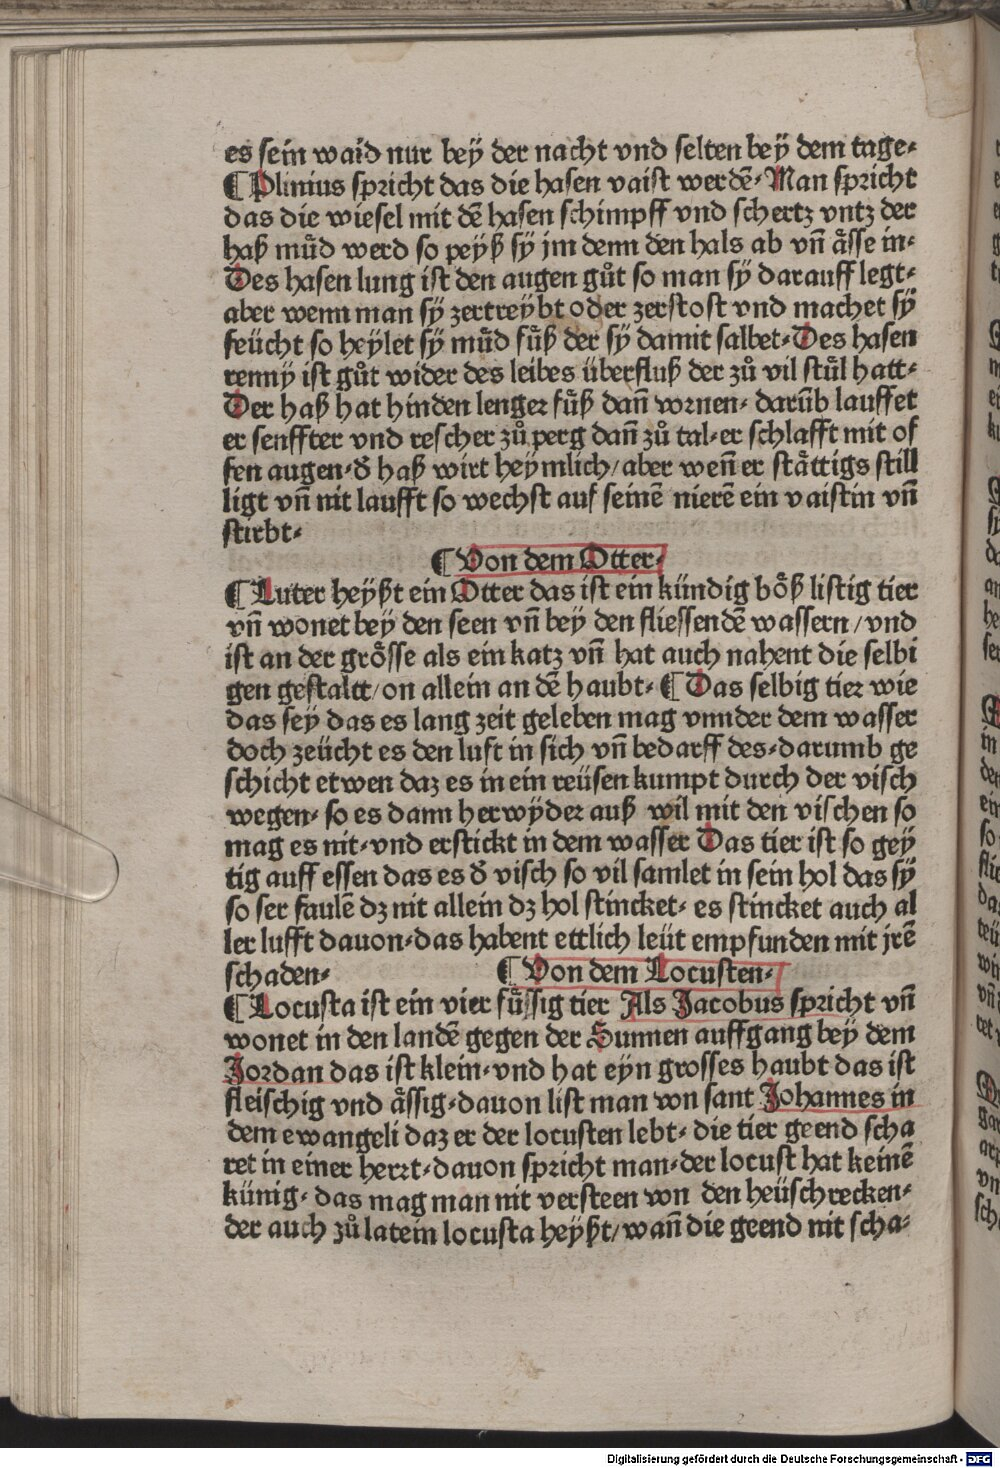 es sein waid nur bey̋ der nacht vnd selten bey̋ dem tage⸗
¶ Plinius spricht das die hasen vaist werdē⸗ Man spricht
das die wiesel mit dē hasen schimpff vnd schertz vntz der
haß muͤd werd so pey̋ß sy̋ jm denn den hals ab vn̄ aͤsse in⸗
Des hasen lung ist den augen guͦt so man sy̋ darauff legt⸗
aber wenn man sy̋ zertrey̋bt oder zerstost vnd machet sy̋
feücht so hey̋let sy̋ muͤd fuͤß der sy̋ damit salbet⸗ Des hasen
renny̋ ist guͦt wider des leibes überfluß der zuͦ vil stuͤl hatt⸗
Der haß hat hinden lenger fuͤß dan̄ vornen⸗ darūb lauffet
er senffter vnd rescher zuͦ perg dan̄ zuͦ tal⸗ er schlafft mit of
fen augen⸗ d̄ haß wirt hey̋mlich/ aber wen̄ er staͤttigs still
ligt vn̄ nit laufft so wechst auf seinē nierē ein vaistin vn̄
stirbt⸗
¶ Von dem Otter⸗
¶ Luter hey̋ßt ein Otter das ist ein kündig boͤß listig tier
vn̄ wonet bey den seen vn̄ bey den fliessendē wassern/ vnd
ist an der groͤsse als ein katz vn̄ hat auch nahent die selbi
gen gestaltt/ on allein an dē haubt⸗ ¶ Das selbig tier wie
das sey̋ das es lang zeit geleben mag vnnder dem wasser
doch zeücht es den luft in sich vn̄ bedarff des⸗ darumb ge
schicht etwen daz es in ein reüsen kumpt durch der visch
wegen⸗ so es dann herwy̋der auß wil mit den vischen so
mag es nit⸗ vnd erstickt in dem wasser Das tier ist so gey̋
tig auff essen das es d̄ visch so vil samlet in sein hol das sy̋
so ser faulē dz nit allein dz hol stincket⸗ es stincket auch al
ler lufft dauon⸗ das habent ettlich leüt empfunden mit jrē
schaden⸗
¶ Von dem Locusten⸗
¶ Locusta ist ein vier fuͤssig tier Als Jacobus spricht vn̄
wonet in den landē gegen der Sunnen auffgang bey̋ dem
Jordan das ist klein⸗ vnd hat eyn grosses haubt das ist
fleischig vnd aͤssig⸗ dauon list man von sant Johannes in
dem ewangeli daz er der locusten lebt⸗ die tier geend scha
ret in einer herrt⸗ dauon spricht man⸗ der locust hat keinē
künig⸗ das mag man nit versteen von den heüschrecken⸗
der auch zuͦ latein locusta hey̋ßt/ wan̄ die geend nit scha⸗
Digitalisierung gefördert durch die Deutsche Forschungsgemeinschaft - DFG